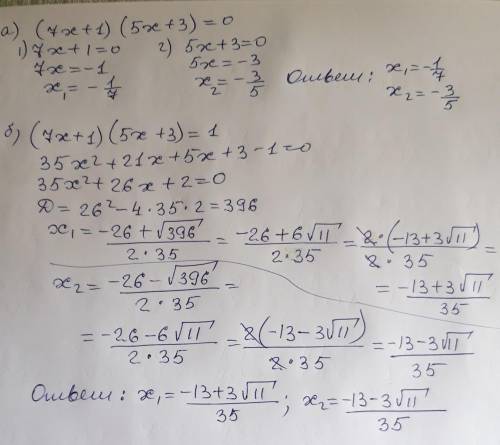 а) (7x+1)(5x+3)=0
1) 7x+1=0 2) 5x+3=0
7x=-1 5x=-3
x₁=-1/7 x₂=-3/5 Ответ: x₁=-1/7
x₂=-3/5
б) (7x+1)(5x+3)=1
35x²+21x+5x+3-1=0
35x²+26x+2=0
Д=26²-4·35·2=396
x₁=(-26+√396)/(2·35)=(-26+6√11)/(2·35)=(2·(-13+3√11))/(2·35)=
=(-13+3√11)/35
x₂=(-26-√396)/(2·35)=
=(-26-6√11)/(2·35)=(2(-13-3√11))/(2·35)=(-13-3√11)/35
Ответ: x₁=(-13+3√11)/35; x₂=(-13-3√11)/35